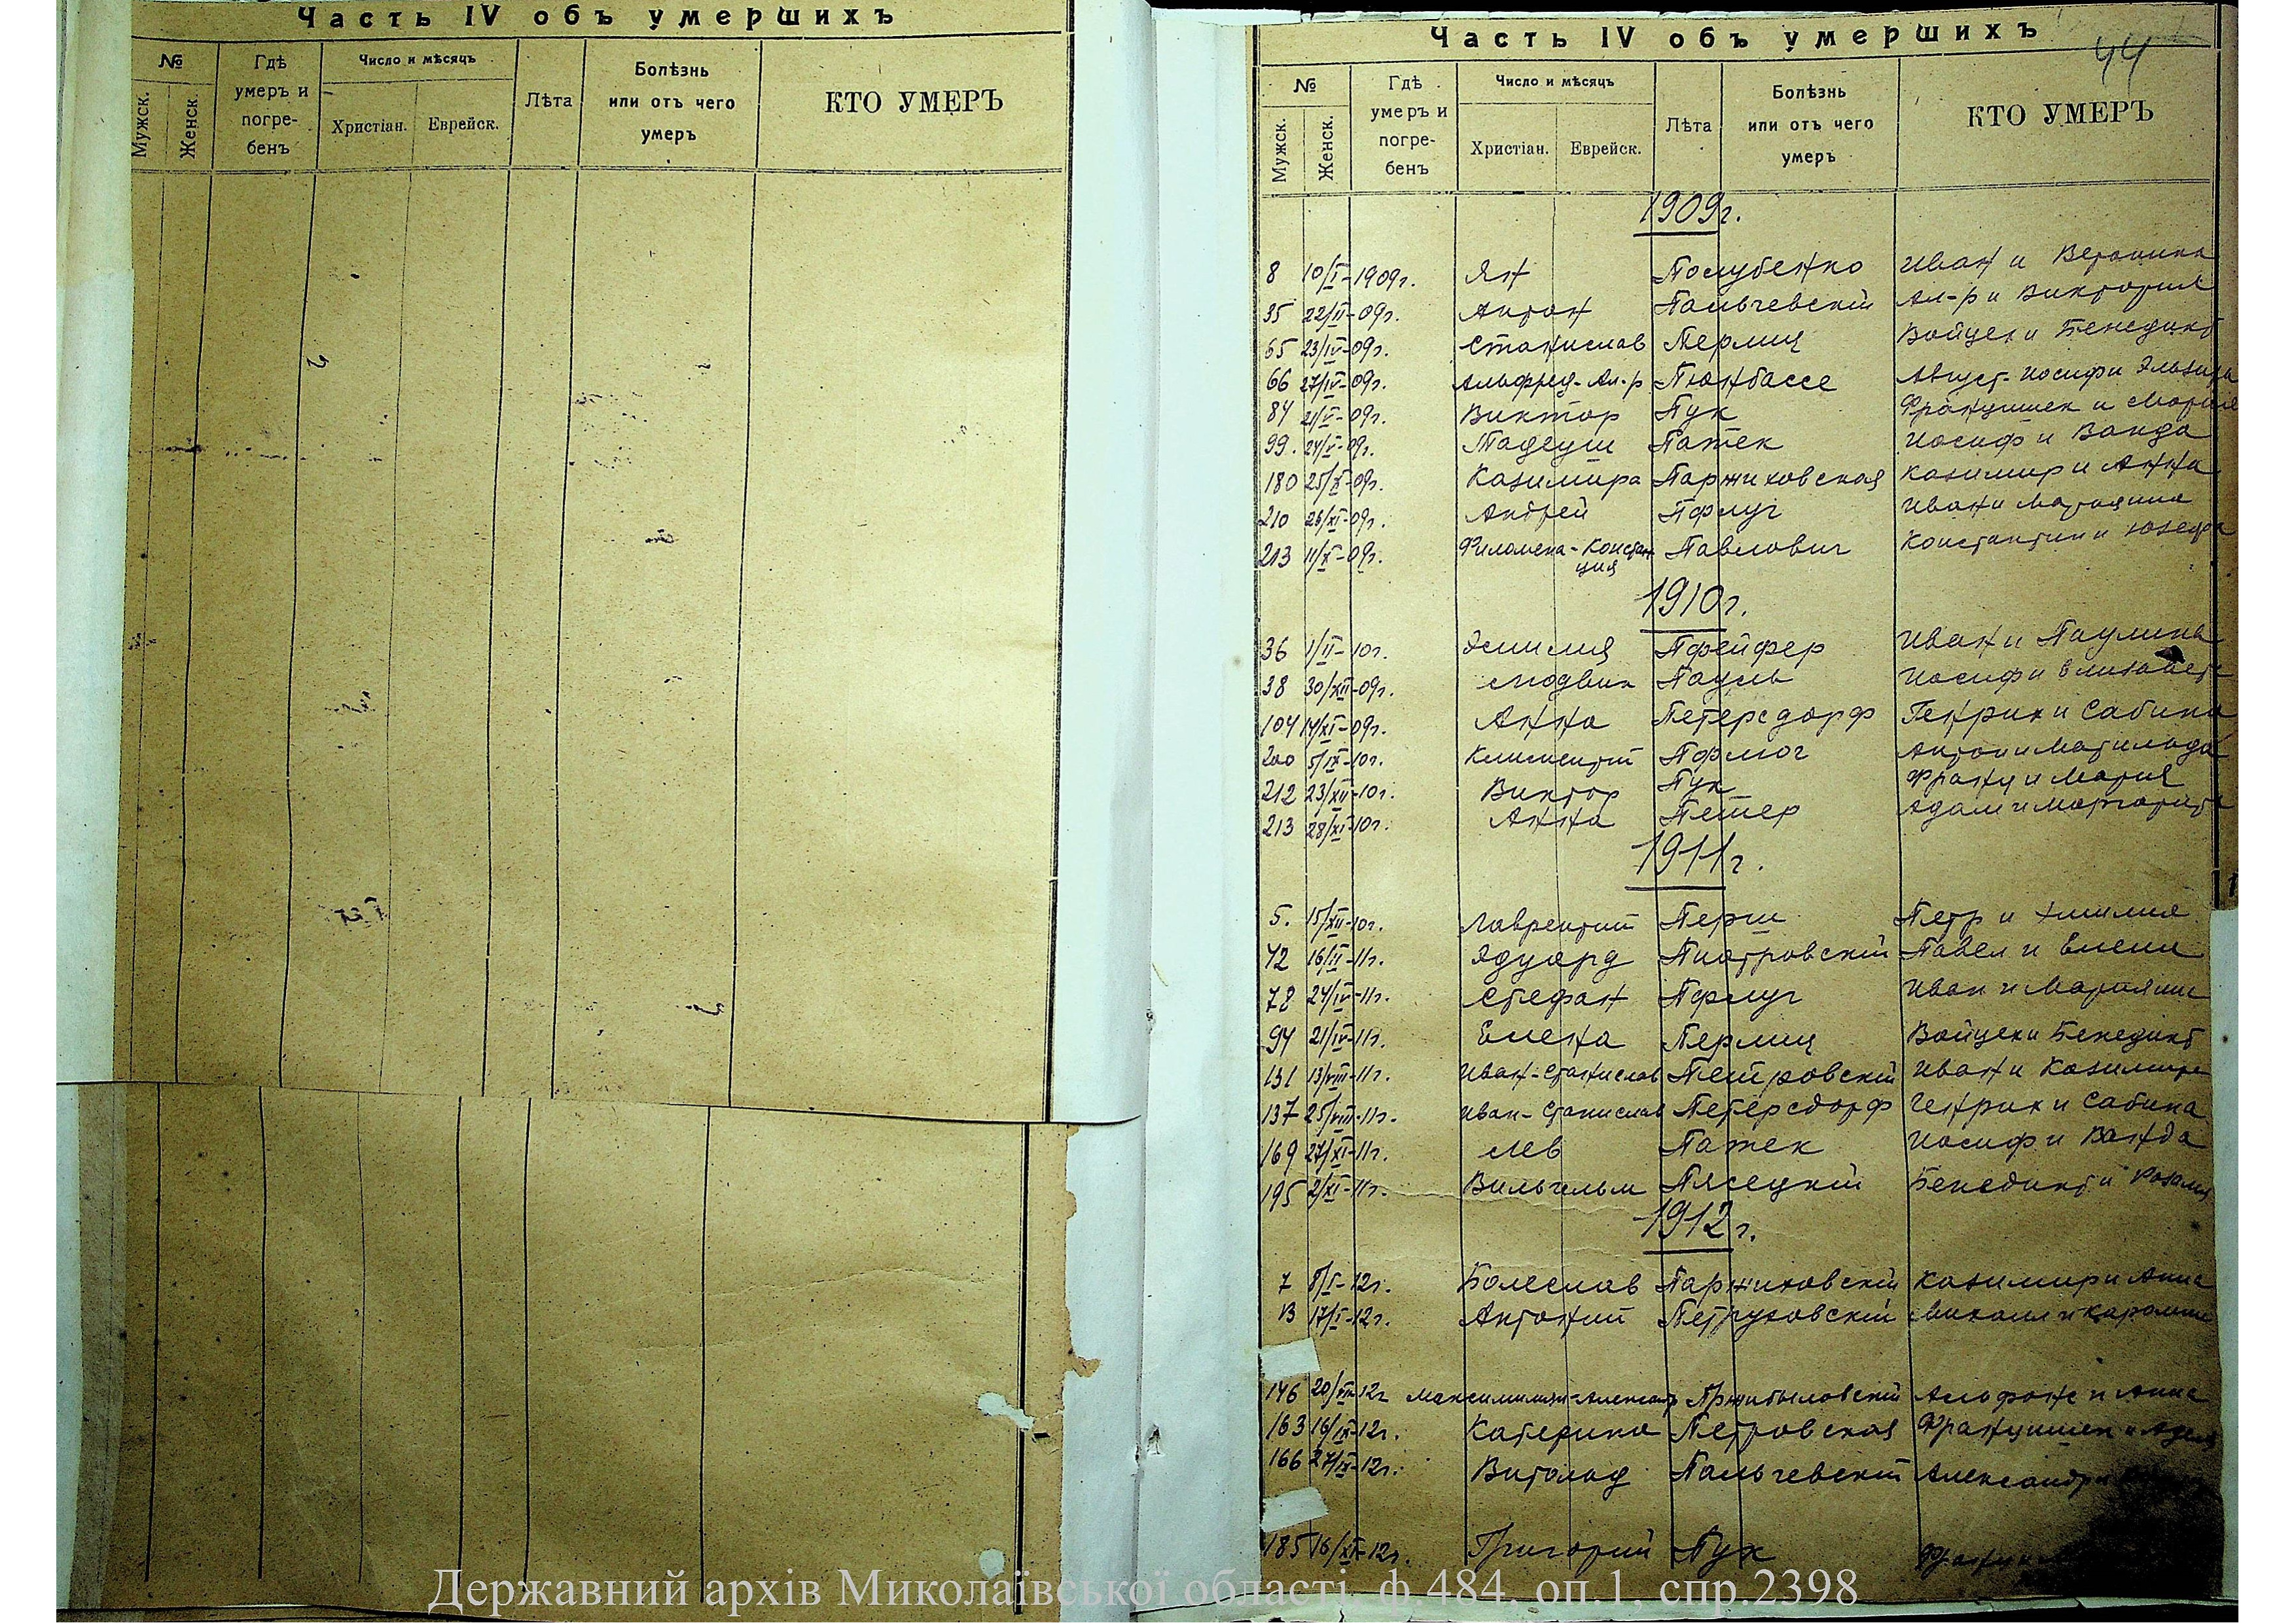 Часть IV объ умершихъ
№ Гдѣ умеръ и погре-бенъ Число и мѣсяцъ Лѣта Болѣзнь или отъ чего умеръ КТО УМЕРЪ
Мужск. Женск. Христіан. Еврейск.
Часть IV объ умершихъ
44
№ Гдѣ умеръ и погре-бенъ Число и мѣсяцъ Лѣта Болѣзнь или отъ чего умеръ КТО УМЕРЪ
Мужск. Женск. Христіан. Еврейск.
1909г.
8 10/I-1909г. Ян Полубенко Иван и Вероника
35 22/II-09г. Антон Пальчевскій Ал-р и Виктория
65 23/IV-09г. Станислав Перлиц Войцех и Бенедикт
66 27/IV-09г. Альфред-Ал-р Август-Иосиф и Эльвира
84 21/V-09г. Виктор Пук Францишек и Мария
99. 24/V-09г. Тадеуш Патек Иосиф и Ванда
180 25/X-09г. Казимира Паржиховская Казимир и Анна
210 26/XI-09г. Андрей Пфлуг Иван и Марианна
213 11/X-09г. Филомена-Констан Павлович Константин и Юзефа
ция
1910г.
36 1/II-10г. Эмилия Пфейфер Иван и Паулина
38 30/XII-09г. Людвик Пауль Иосиф и Елизавета
104 14/XI-09г. Анна Петерсдорф Генрих и Сабина
200 5/IX-10г. Климентий Антон и Матильда
212 23/XII-10г. Виктор Пук Франц и Мария
213 28/XI-10г. Анна Петер Адам и Маргарита
1911г.
5. 15/XII-10г. Лаврентий Перш Петр и Эмилия
42 16/II-11г. Эдуард Пиотровскій Павел и Елена
78 24/IV-11г. Стефан Пфлуг Иван и Марианна
94 21/IV-11г. Елена Перлиц Войцех и Бенедикт
131 13/VIII-11г. Иван-Станислав Петровскій Иван и Казимира
137 25/VIII-11г. Иван-Станислав Петерсдорф Генрих и Сабина
169 27/XI-11г. Лев Патек Иосиф и Ванда
195 2/XI-11г. Вильгельм Пясецкій Бенедикт и Розалия
1912г.
7 8/I-12г. Болеслав Паржиховскій Казимир и Анна
13 17/I-12г. Антоний Петруховскій Михаил и Каролина
146 20/VIII-12г Максимилиан-Александр Пржибыловскій Альфонс и Анна
163 16/IX-12г. Катерина Петровская Францишек и
166 27/IX-12г. Витольд Пальчевскій Александр и
185 16/XI-12г. Григорий Пук
Державний архів Миколаївської області, ф.484, оп.1, спр.2398